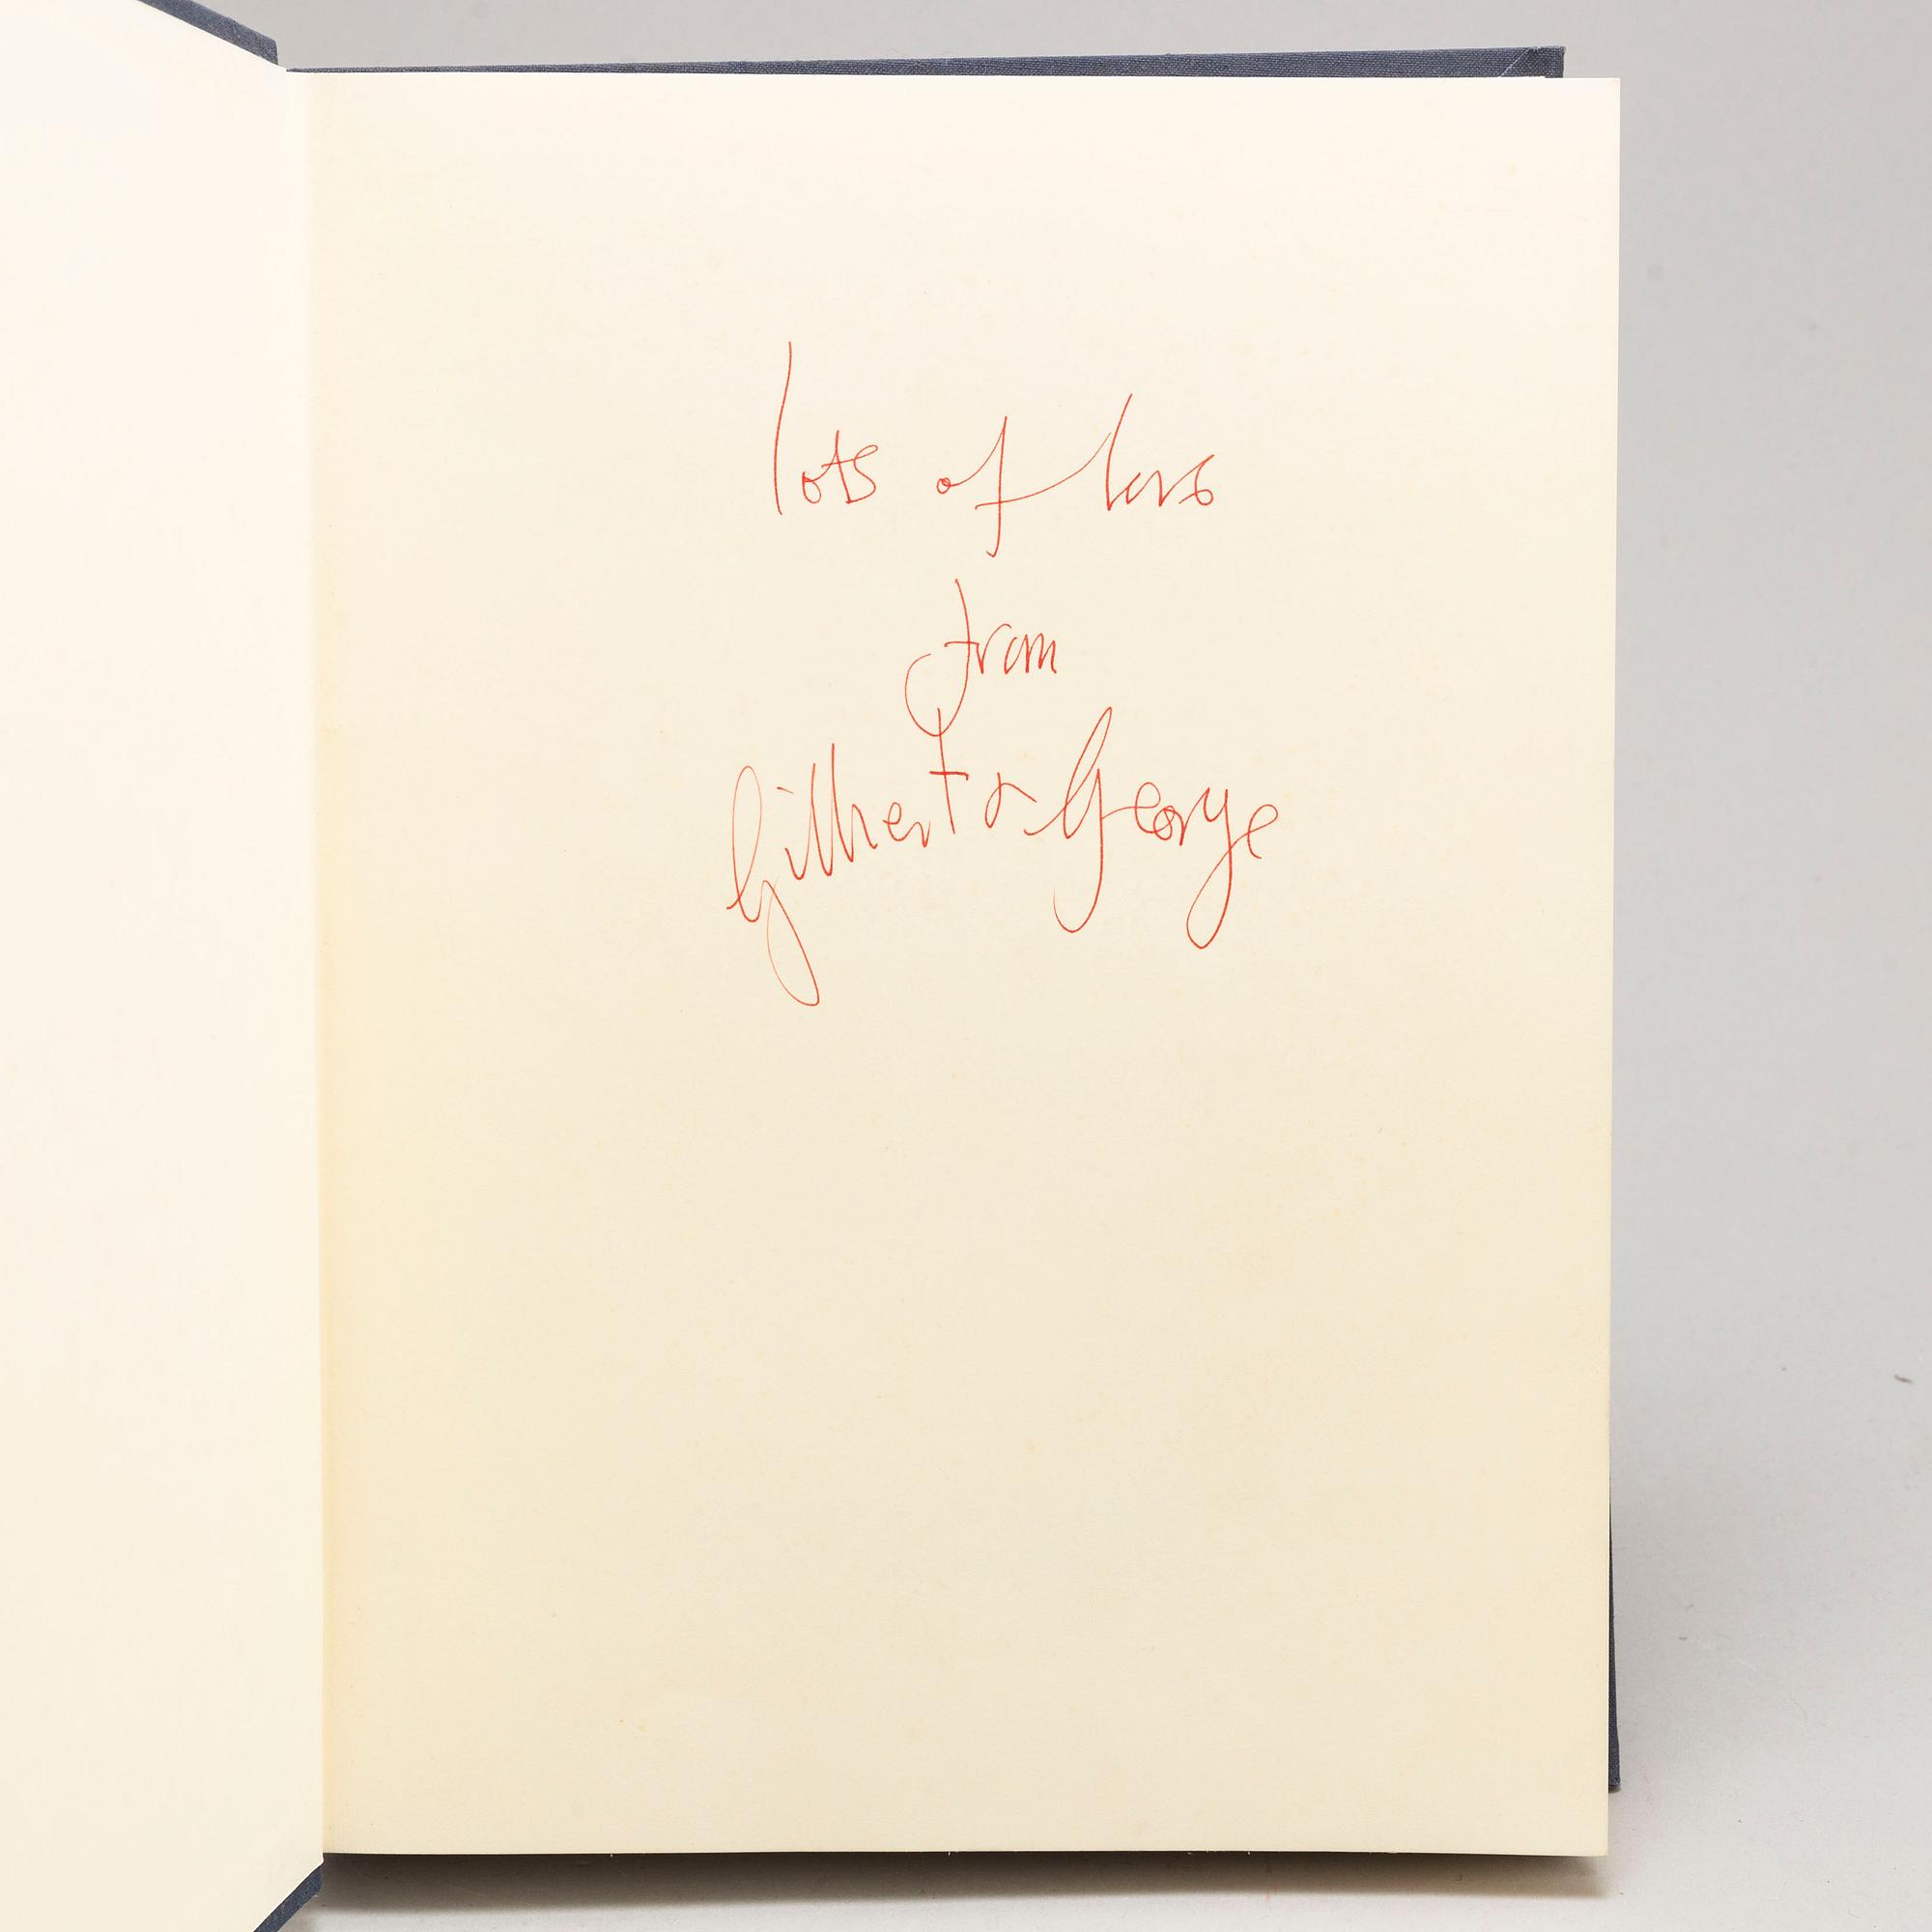 lots of love
from
Gilbert & George